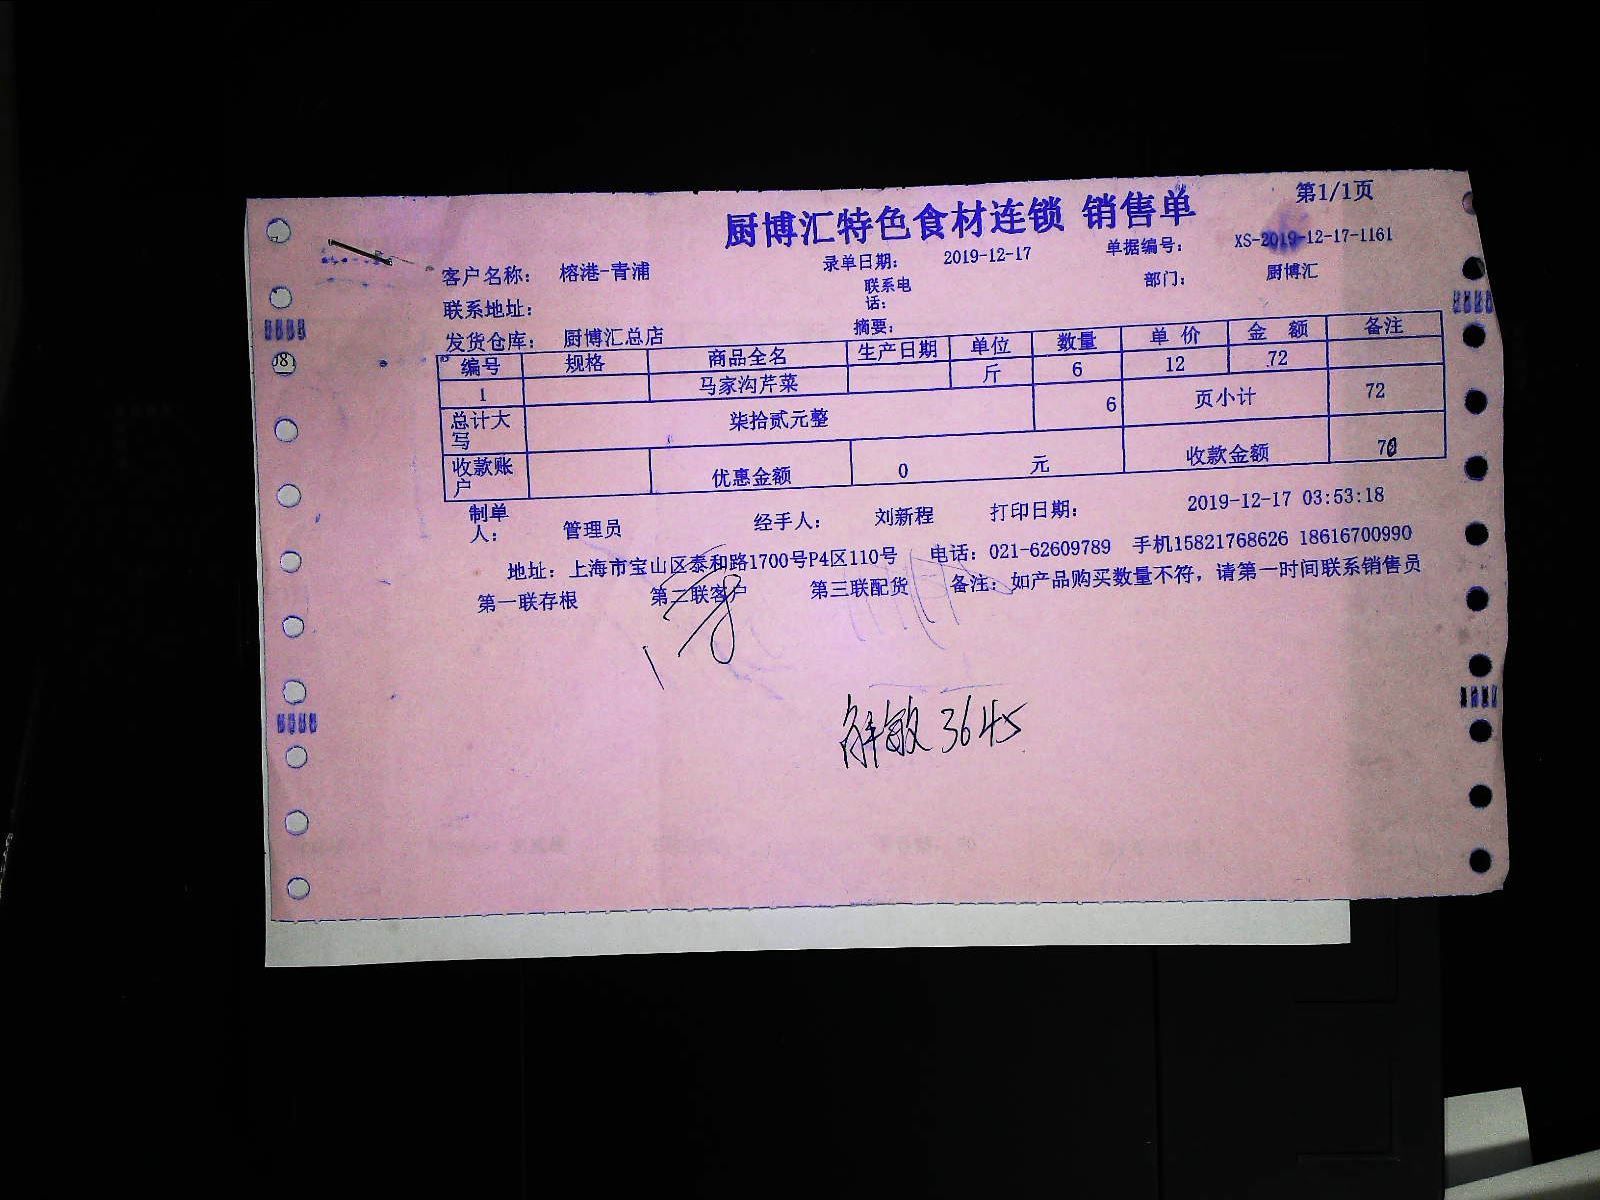 第1/1页
厨博汇特色食材连锁 销售单
客户名称： 榕港-青浦 录单日期： 2019-12-17 单据编号： XS-2019-12-17-1161
联系地址： 联系电话： 部门： 厨博汇
发货仓库： 厨博汇总店 摘要：
编号 规格 商品全名 生产日期 单位 数量 单 价 金 额 备注
1 马家沟芹菜 斤 6 12 72
总计大写 柒拾贰元整 6 页小计 72
收款账户 优惠金额 0 元 收款金额
制单人： 管理员 经手人： 刘新程 打印日期： 2019-12-17 03:53:18
地址：上海市宝山区泰和路1700号P4区110号 电话：021-62609789 手机15821768626 18616700990
第一联存根 第二联客户 第三联配货 备注：如产品购买数量不符，请第一时间联系销售员
解敏 3645